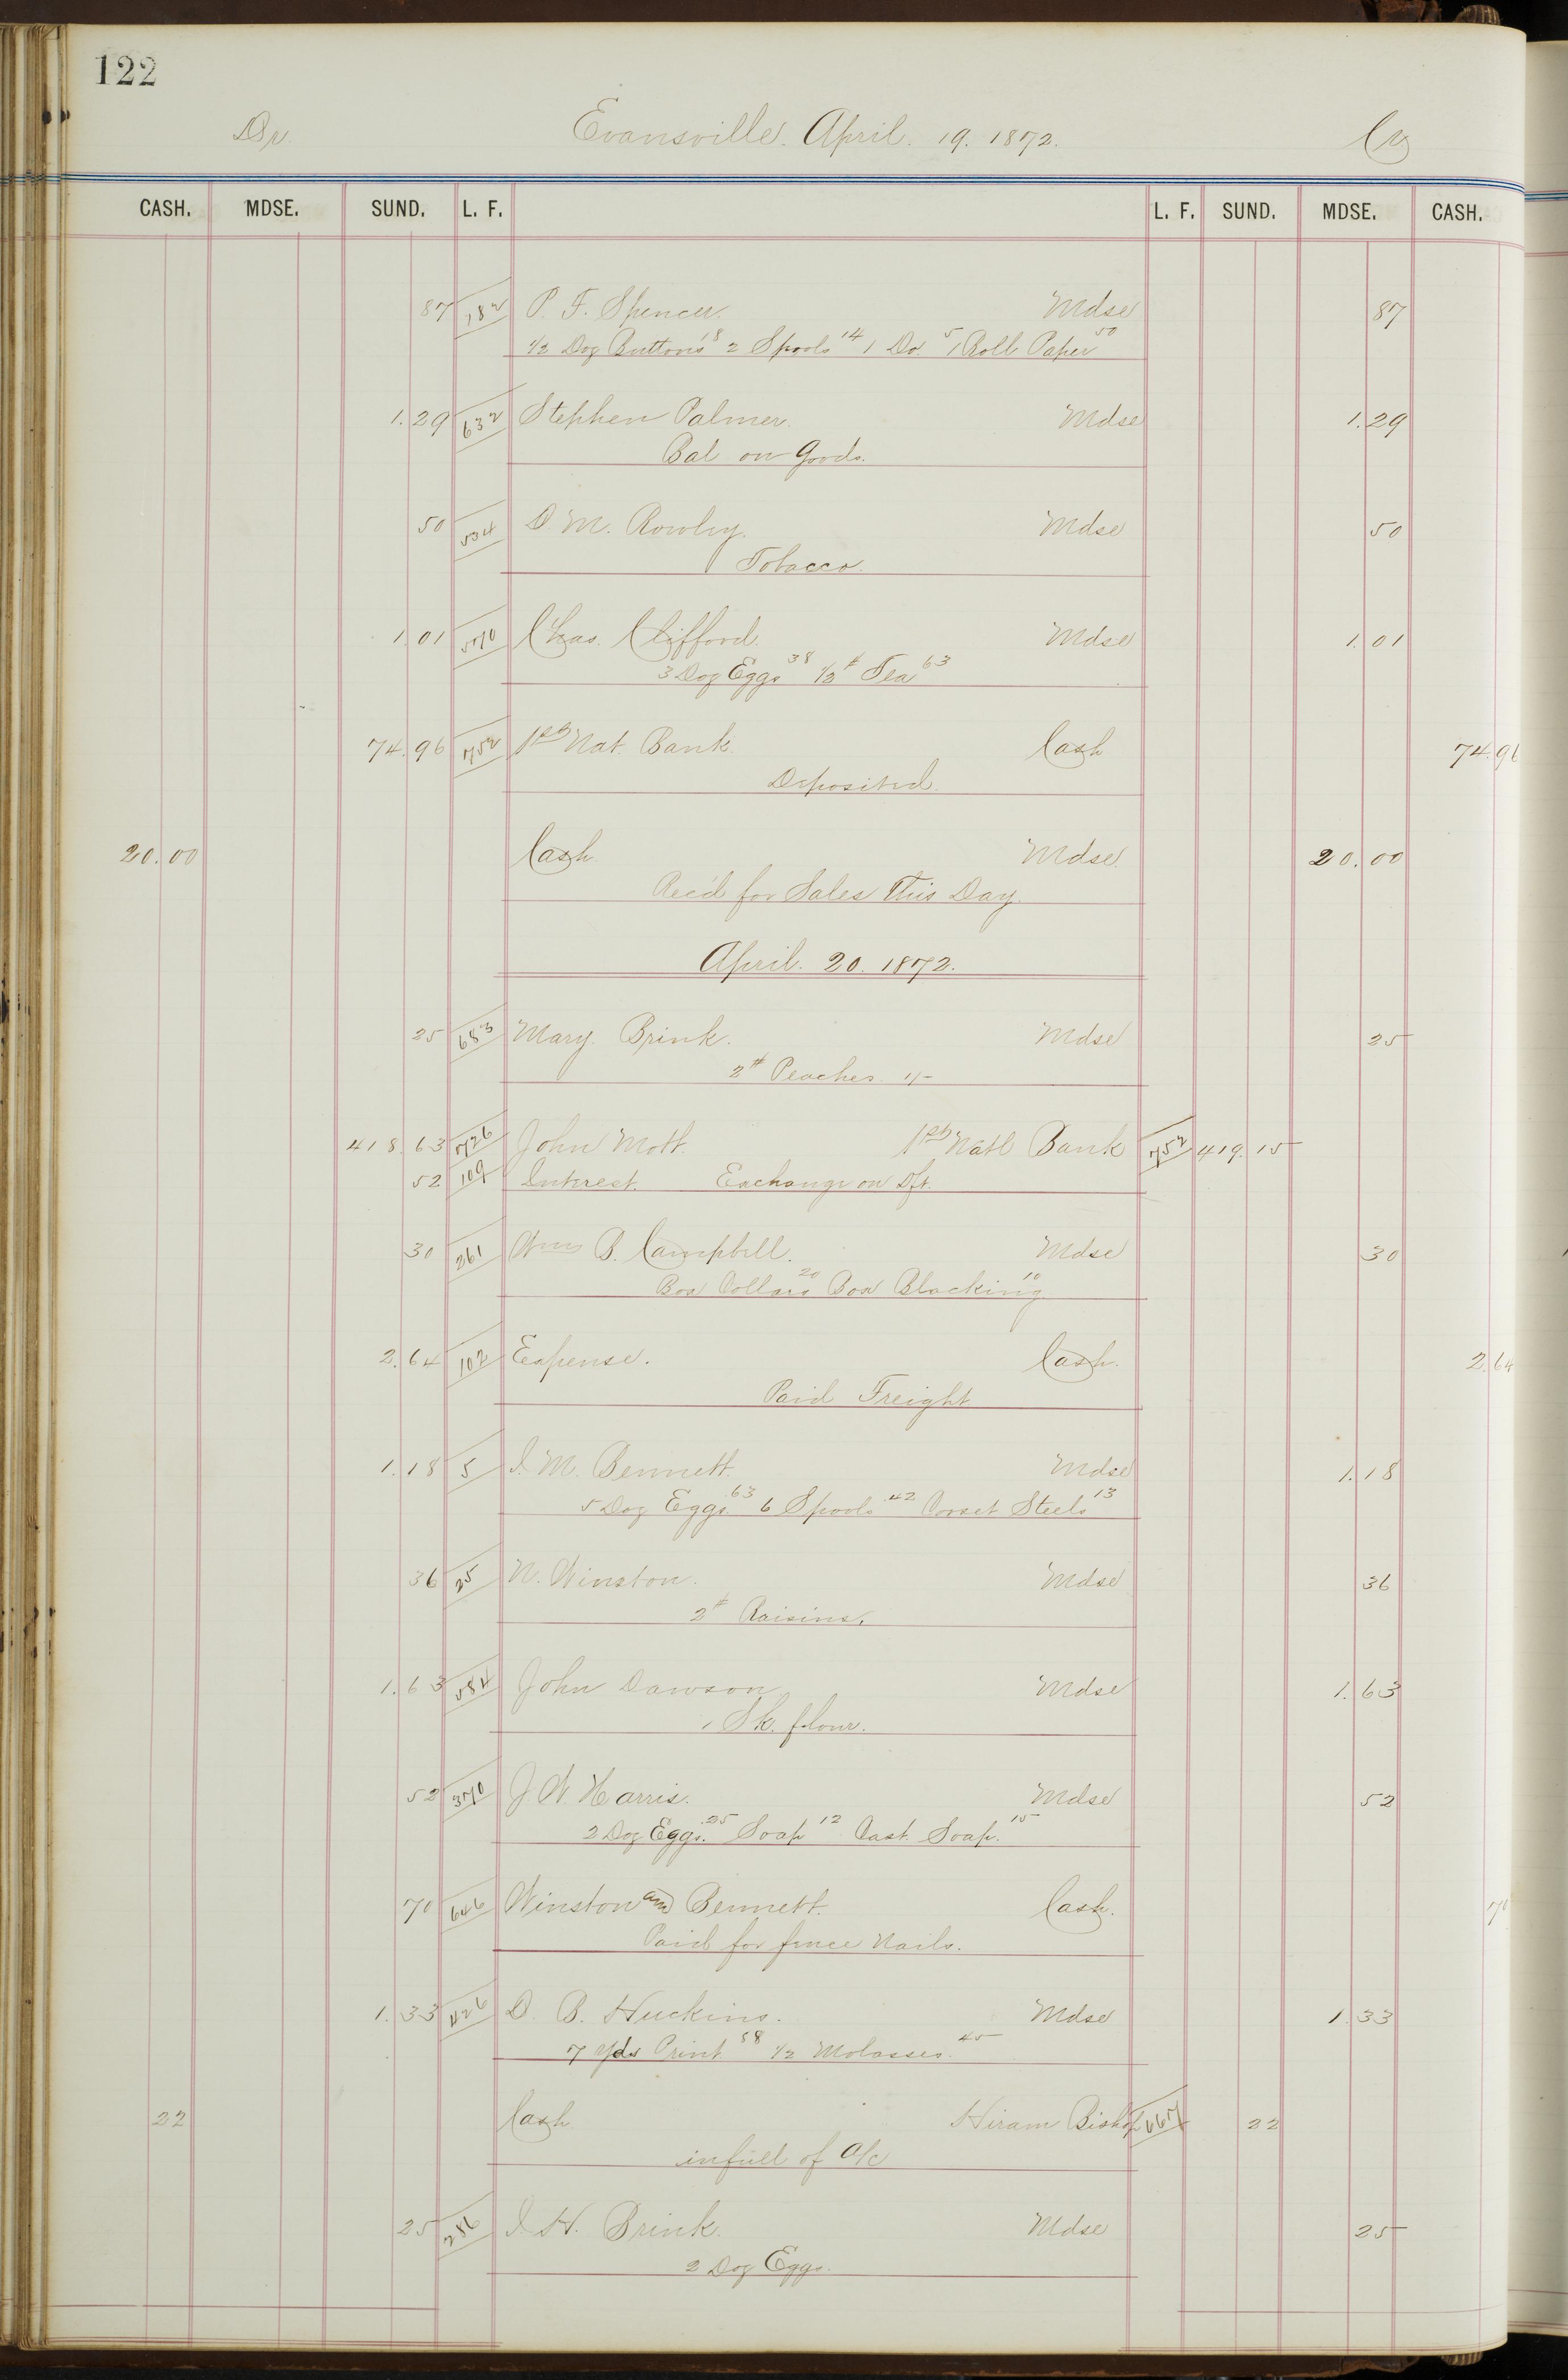 122
Dr. Evansville. April. 19. 1872. Cr
CASH. MDSE. SUND. L. F. L. F. SUND. MDSE. CASH.
87 182 P. F. Spencer. Mdse 87
1/2 Doz Buttons 18 2 Spools 14 1 Do. 5 1 Roll Paper 50
1.29 632 Stephen Palmer. Mdse 1.29
Bal on Goods.
50 534 D. M. Rowley. Mdse 50
Tobacco.
1.01 570 Chas. Clifford. Mdse 1.01
3 Doz Eggs 38 1/2 # Tea 63
74.96 752 1st Nat. Bank. Cash 74.96
Deposited.
20.00 Cash Mdse. 20.00
Rec'd for Sales This Day.
April. 20. 1872.
25 683 Mary. Brink. Mdse 25
2# Peaches. 1/-
418.63 726 John Mott. 1st Natl Bank 752 419.15
52 109 Interest. Exchange on Dft.
30 261 Wm B. Campbell. Mdse 30
Box Collars 20 Box Blacking 10
2.64 102 Expense. Cash. 2.64
Paid Freight
1.18 5 I. M. Bennett. Mdse 1.18
5 Doz Eggs. 63 6 Spools 42 Corset Steels 13
36 25 N. Winston. Mdse 36
2# Raisins.
1.63 584 John Dawson Mdse 1.63
1 Sk. flour.
52 370 J. W. Harris. Mdse 52
2 Doz Eggs. 25 Soap 12 Cast. Soap. 15
70 646 Winston and Bennett. Cash. 70
Paid for fence Nails.
1.33 426 D. B. Huckins. Mdse 1.33
7 Yds Print 88 1/2 Molasses. 45
22 Cash Hiram Bishop 667 22
in full of A/c
25 286 I. H. Brink. Mdse 25
2 Doz Eggs.